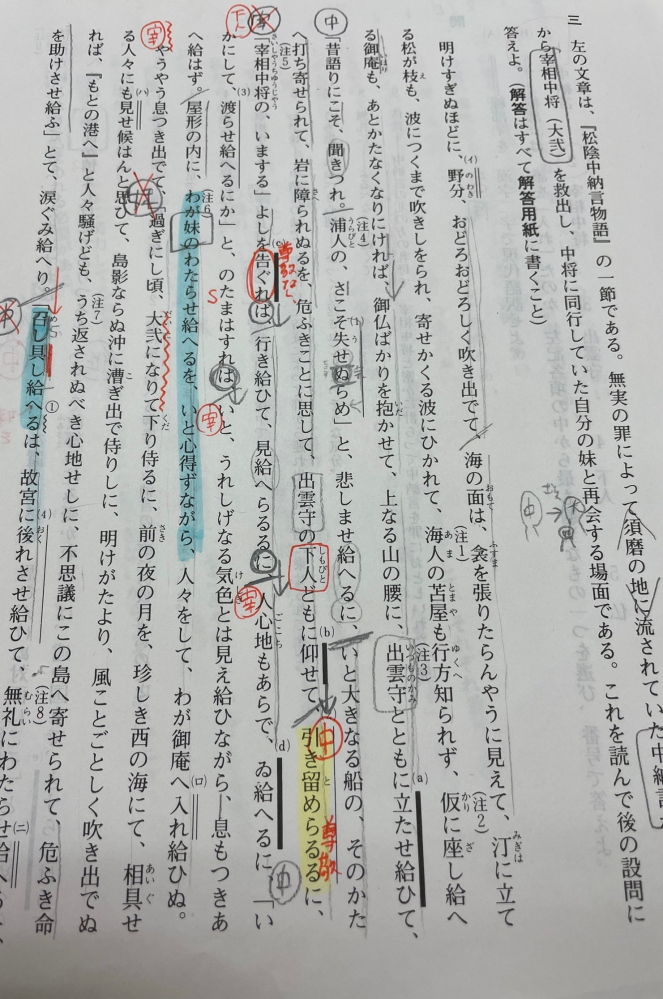 三　左の文章は、『松陰中納言物語』の一節である。無実の罪によって須磨の地に流されていた中納言が
から宰相中将（大弐）を救出し、中将に同行していた自分の妹と再会する場面である。これを読んで後の設問に
答えよ。（解答はすべて解答用紙に書くこと）
明けすぎぬほどに、野分、おどろおどろしく吹き出でて、海の面は、衾を張りたらんやうに見えて、汀に立て
る松が枝も、波につくまで吹きしをられ、寄せかくる波にひかれて、海人の苫屋も行方知られず、仮に座し給へ
る御庵も、あとかたなくなりにければ、御仏ばかりを抱かせて、上なる山の腰に、出雲守とともに立たせ給ひて、
「昔語りにこそ、聞きつれ。浦人の、さこそ失せぬらめ」と、悲しませ給へるに、いと大きなる船の、そのかた
へ打ち寄せられて、岩に障られぬるを、危ふきことに思して、出雲守の下人どもに仰せて、引き留めらるるに、
「宰相中将の、いまする」よしを告ぐれば、行き給ひて、見給へらるるに、人心地もあらで、ゐ給へるに「い
かにして、渡らせ給へるにか」と、のたまはすれば、いと、うれしげなる気色とは見え給ひながら、息もつきあ
へ給はず。屋形の内に、わが妹のわたらせ給へるを、いと心得ずながら、人々をして、わが御庵へ入れ給ひぬ。
やうやう息つき出でて、「過ぎにし頃、大弐になりて下り侍るに、前の夜の月を、珍しき西の海にて、相具せ
る人々にも見せ候はんと思ひて、島影ならぬ沖に漕ぎ出で侍りしに、明けがたより、風ことごとしく吹き出でぬ
れば、『もとの港へ』と人々騒げども、うち返されぬべき心地せしに、不思議にこの島へ寄せられて、危ふき命
を助けさせ給ふ」とて、涙ぐみ給へり。「召し具し給へるは、故宮に後れさせ給ひて、無礼にわたらせ給へ